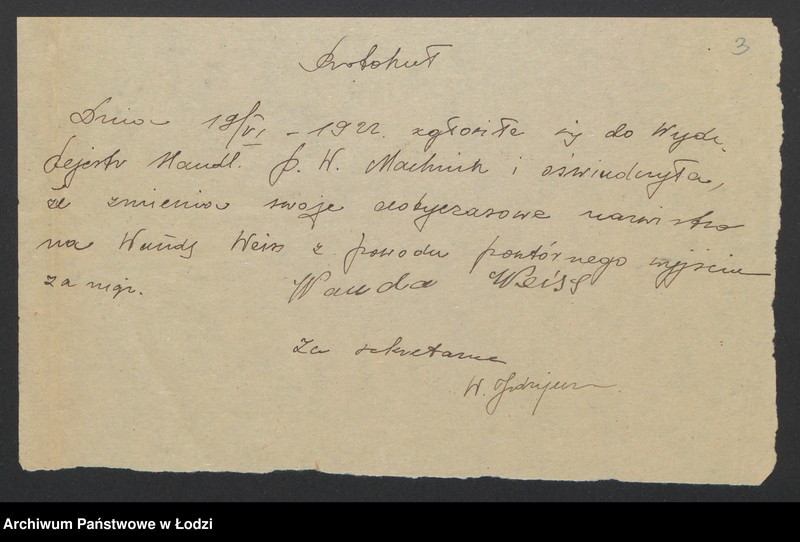 3
Protokuł
Dnia 19/VI - 1922. zgłosiła się do Wydz.
Rejestr Handl. p. W. Machnik i oświadczyła,
że zmienia swoje dotychczasowe nazwisko
na Wandę Weiss z powodu powtórnego wyjścia
za mąż.
Wanda Weiss
Za sekretarza
W.
Archiwum Państwowe w Łodzi